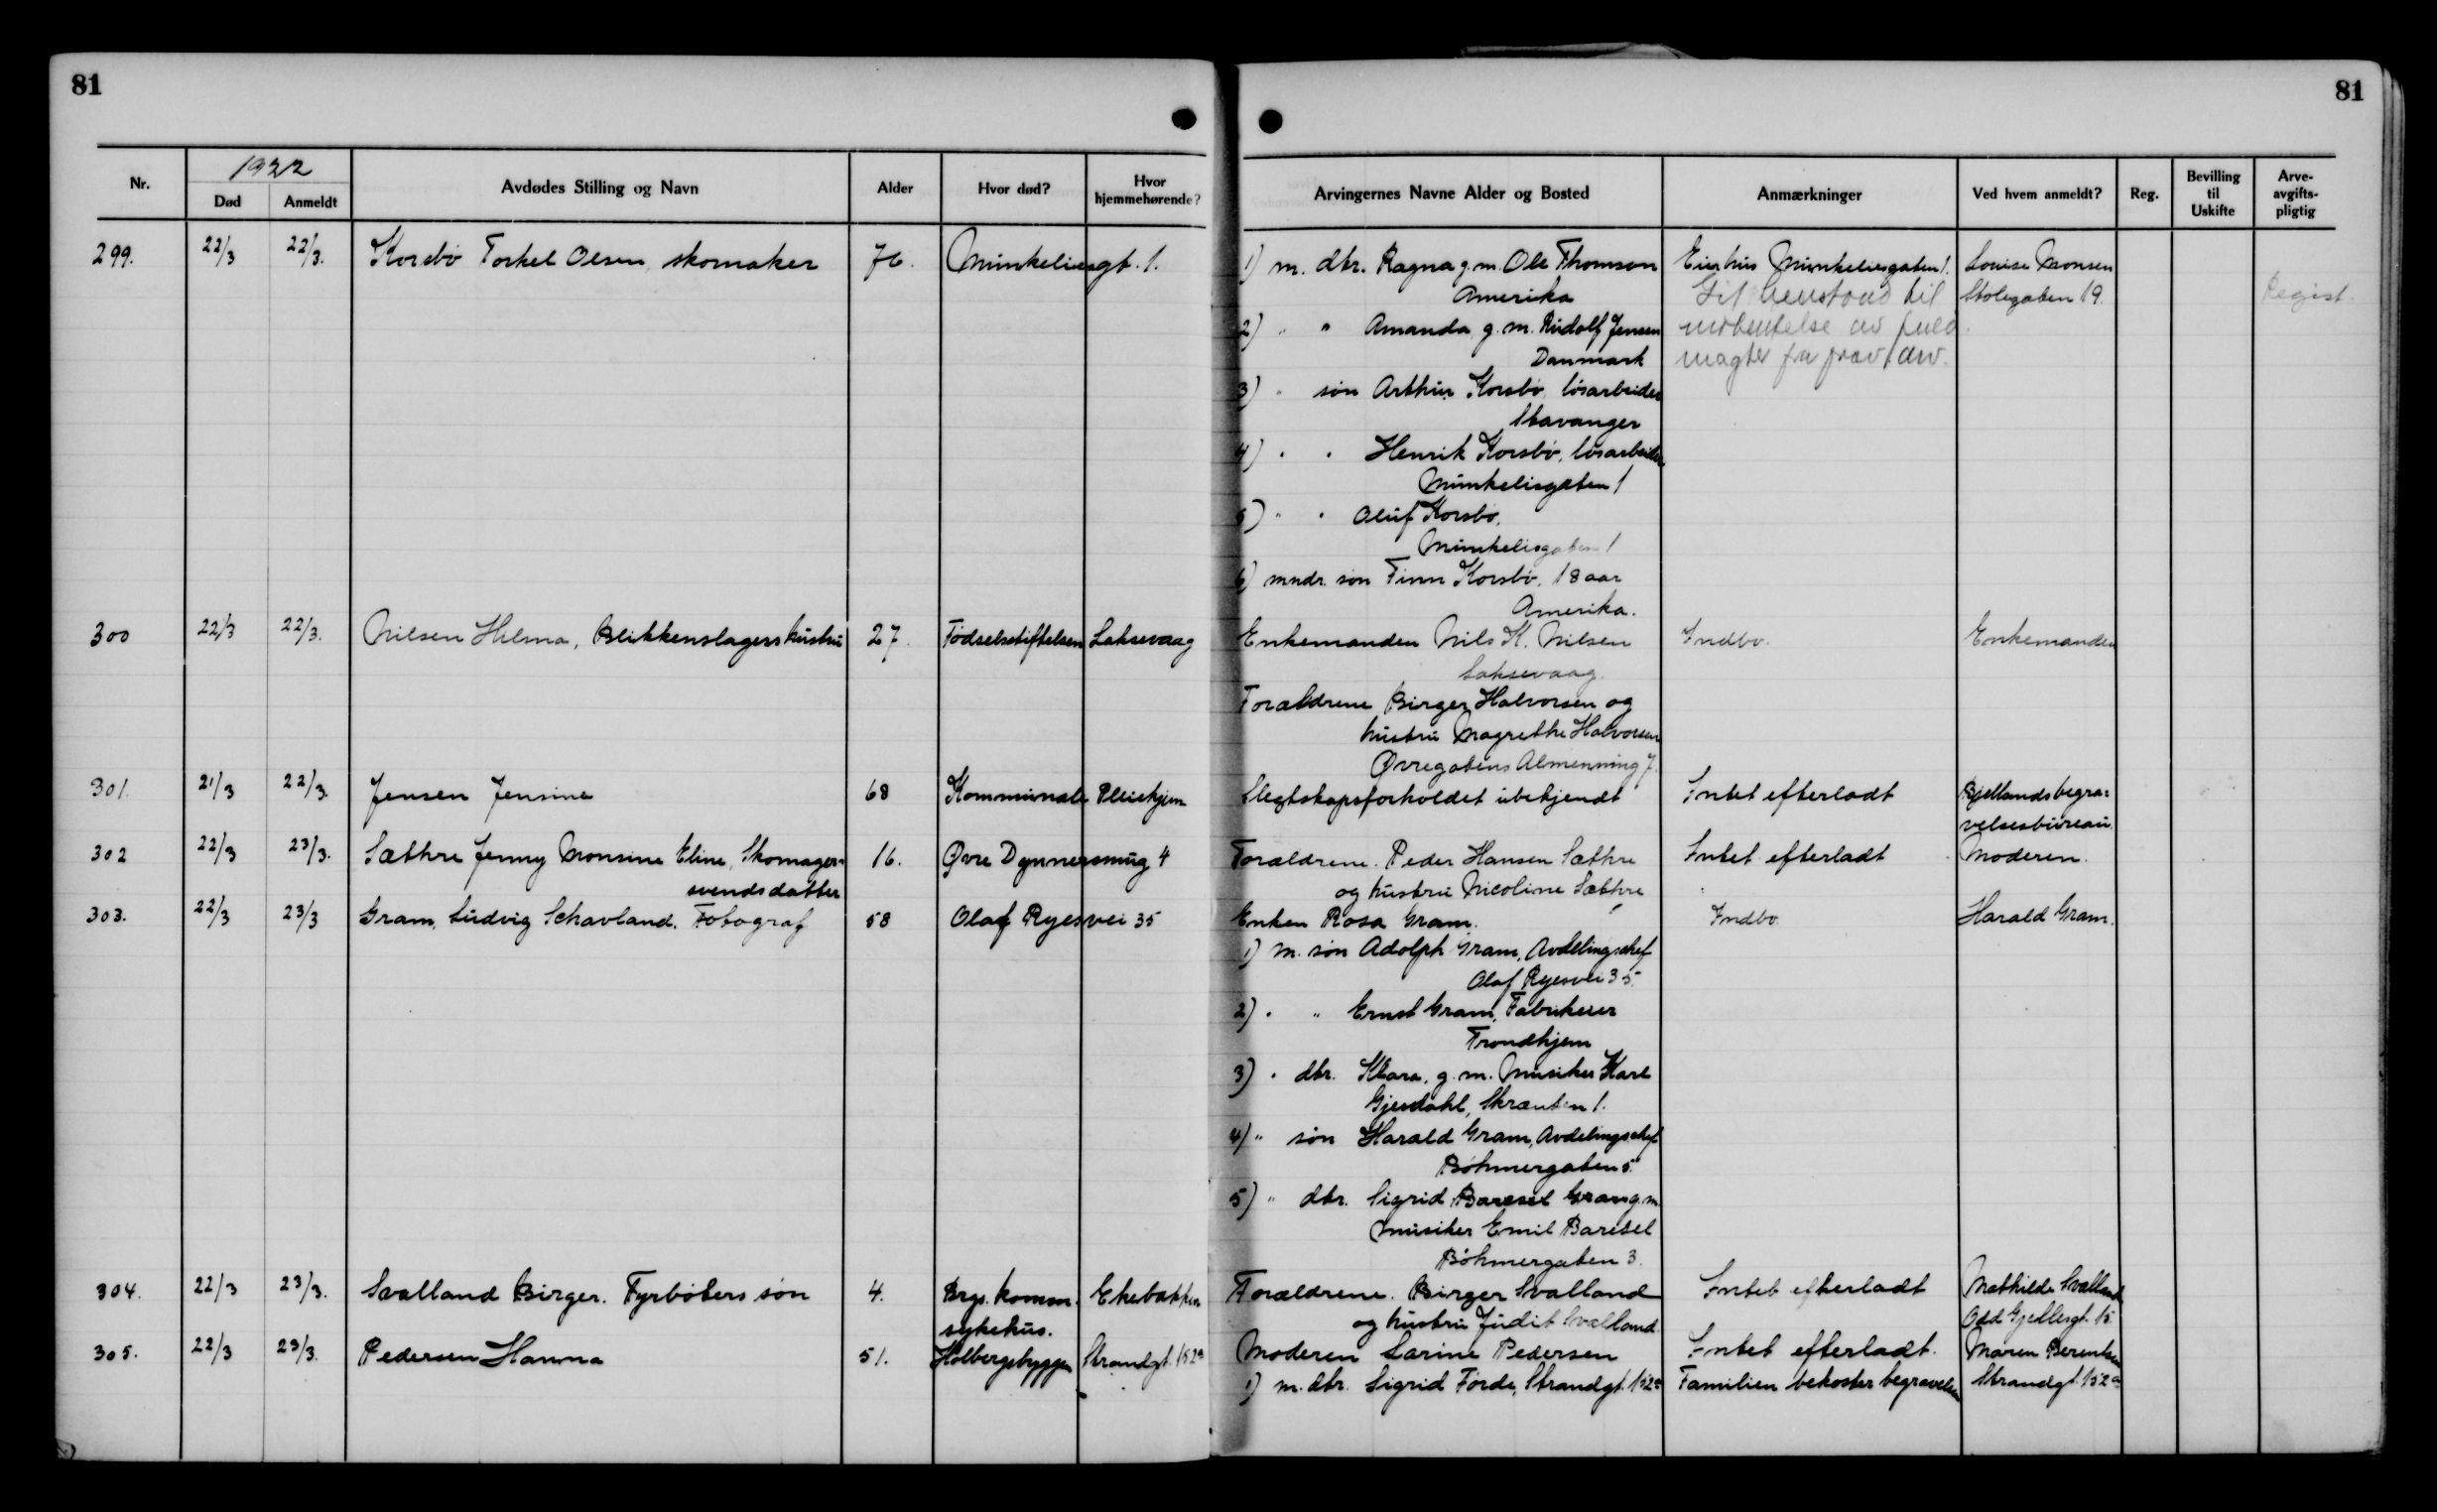 81
81
Nr.
1922
Død
Anmeldt
Avdødes Stilling og Navn
Alder
Hvor død?
Hvor hjemmehørende?
Arvingernes Navne Alder og Bosted
Anmærkninger
Ved hvem anmeldt?
Reg.
Bevilling til Uskifte
Arve-avgifts-pligtig
299. 22/3 22/3. Korsbø Torkel Olsen, skomaker 76. Munkeliesgt. 1.
1) m. dtr. Ragna g. m. Ole Thomson
Amerika
2) " " Amanda g. m. Rudolf Jensen
Danmark
3) " søn Arthur Korsbø, løsarbeider
Stavanger
4) " " Henrik Korsbø, løsarbeider
Munkeliesgaten 1
5) " " Oluf Korsbø,
Munkeliesgaten 1
6) mndr. søn Finn Korsbø, 18 aar
Amerika.
Eier hus Munkeliesgaten 1.
Git henstand til
indhentelse av fuld
magter fra fravær. arv.
Louise Monsen
Stølegaten 19.
Regist.
300 22/3 22/3. Nilsen Helma, Blikkenslagers hustru 27. Fødselsstiftelsen Laksevaag
Enkemanden Nils K. Nilsen
Laksevaag.
Forældrene Birger Halvorsen og
hustru Magrethe Halvorsen
Øvregatens Almenning 7.
Indbo.
Enkemanden
301. 21/3 22/3. Jensen Jensine 68 Kommunale Pleiehjem
Slegtskapsforholdet ubekjendt
Intet efterladt
Bjellands begra=
velsesbureau.
302 22/3 23/3. Sæthre Jenny Monsine Eline, Skomager=
svends datter
16. Øvre Dynnersmug 4
Forældrene. Peder Hansen Sæthre
og hustru Nicoline Sæthre
Intet efterladt
Moderen.
303. 22/3 23/3 Gram, Ludvig Schavland. Fotograf 58 Olaf Ryes vei 35
Enken Rosa Gram.
1) m. søn Adolph Gram, Avdelingschef
Olaf Ryesvei 35.
2) " " Ernst Gram, Fabrikeier
Trondhjem
3) " dtr. Klara, g. m. Musiker Karl
Gjerdahl, Skrænten 1.
4) " søn Harald Gram, Avdelingschef
Bøhmergaten 5.
5) " dtr. Sigrid Baresel Gram g. m.
musiker Emil Baresel
Bøhmergaten 3.
Indbo
Harald Gram.
304. 22/3 23/3. Svalland Birger. Fyrbøters søn 4. Brgs. komm.
sykehus.
Ekebakken
Forældrene. Birger Svalland
og hustru Judit Svalland.
Intet efterladt
Mathilde Svalland
Odd Gjellesgt. 15.
305. 22/3 23/3. Pedersen Hanna 51. Holbergsbyggen Strandgt. 152a
Moderen Sarine Pedersen
1) m. dtr. Sigrid Førde, Strandgt. 152a
Intet efterladt.
Familien bekoster begravelsen
Maren Berentsen
Strandgt. 152a